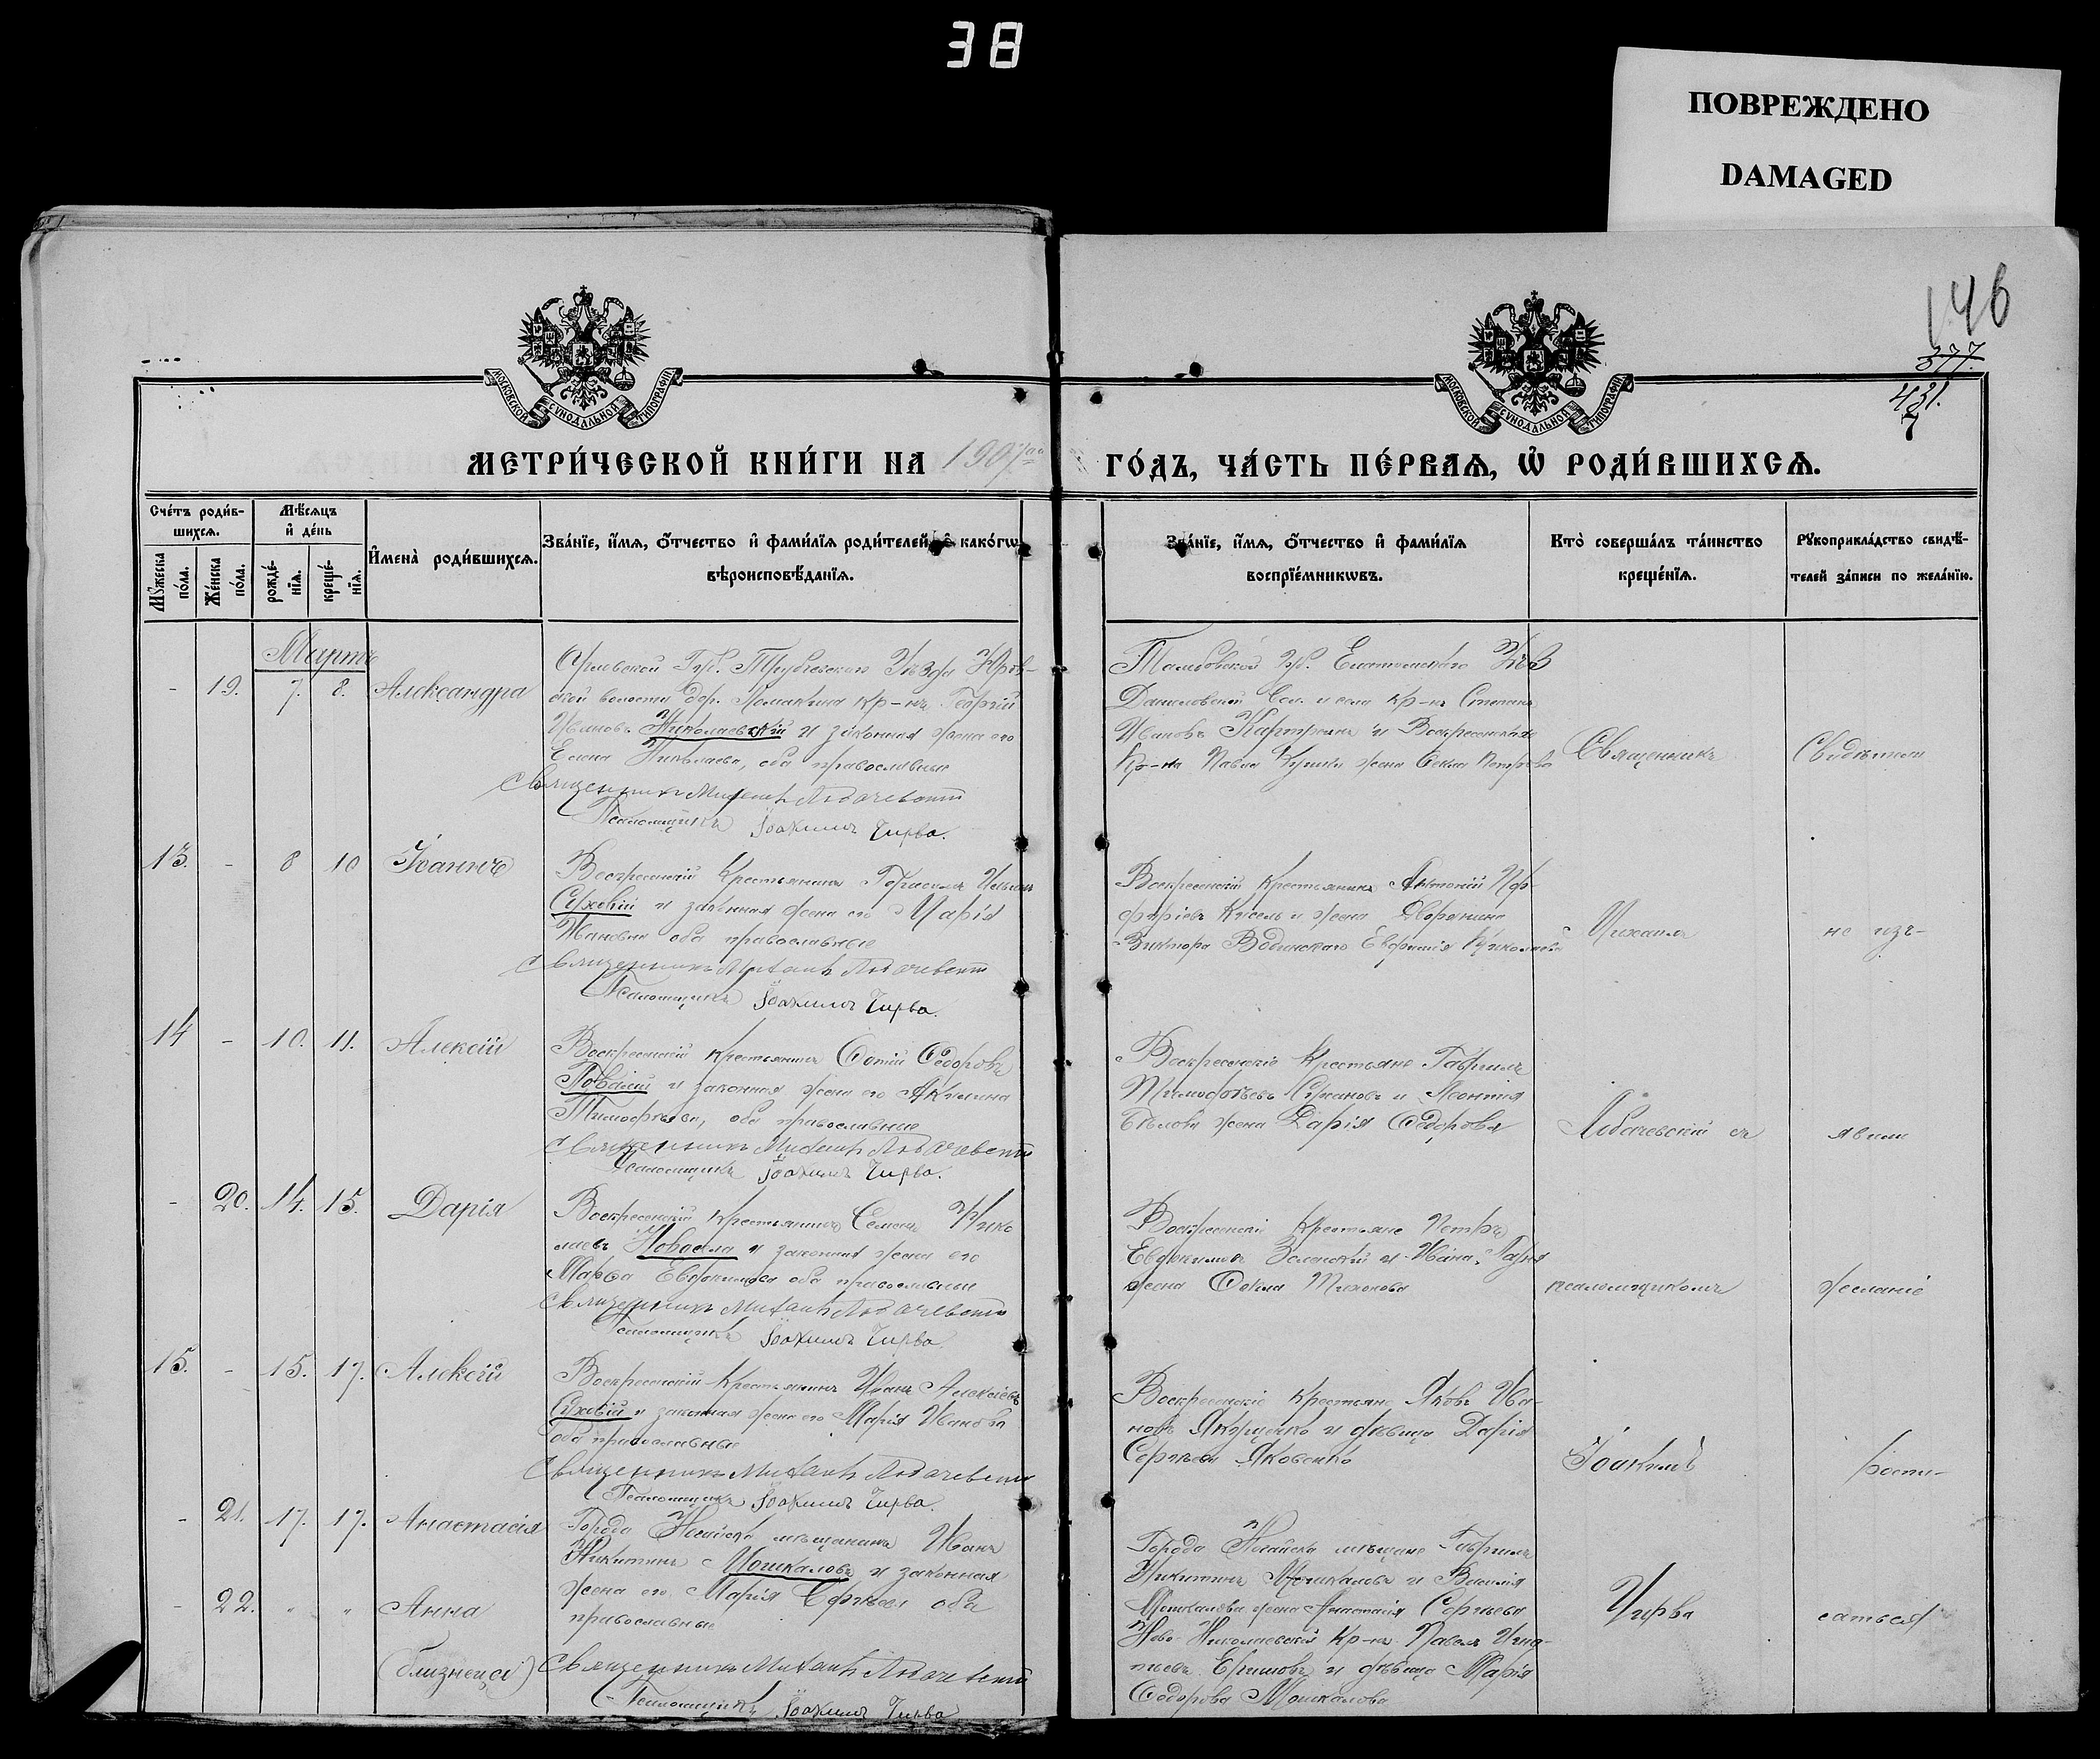 38
ПОВРЕЖДЕНО
DAMAGED
146
377.
431.
7
МОСКОВСКОЙ СѴНОДАЛЬНОЙ ТИПОГРАФІИ
МОСКОВСКОЙ СѴНОДАЛЬНОЙ ТИПОГРАФІИ
МЕТРИ́ЧЕСКОЙ КНИ́ГИ НА 1907
ГО́ДЪ, ЧА́СТЬ ПЕ́РВАѦ, Ѡ҆ РОДИ́ВШИХСѦ.
Сче́тъ роди́в-
шихсѧ.
Мꙋ́жеска по́ла.
Же́нска по́ла.
Мѣ́сѧцъ
и҆ де́нь
рожде́-
нїѧ.
креще́-
нїѧ.
И҆мена̀ роди́вшихсѧ.
Зва́нїе, и҆́мѧ, ѻ҆́тчество и҆ фами́лїѧ роди́телей, и҆ како́гѡ
вѣроисповѣ́данїѧ.
Зва́нїе, и҆́мѧ, ѻ҆́тчество и҆ фами́лїѧ
воспрїе́мникѡвъ.
Кто̀ соверша́лъ та́инство
креще́нїѧ.
Рꙋкоприкла́дство свидѣ́-
телей за́писи по жела́нїю.
Мартъ
- 19. 7. 8. Александра
Орловской Губ. Трубчевскаго Уѣзда Юров-
ской волости дер. Ломакина кр-нъ Георгій
Ивановъ Николаевскій и законная жена его
Елена Николаева, оба православные
Священникъ Михаилъ Лобачевскій
Псаломщикъ Іоакимъ Чирва.
Тамбовской Губ. Елатомскаго Уѣз
кр-нъ Степанъ
Ивановъ и Воскресенскаго
Кр-на Павла жена Ѳекла Петрова
Священникъ
Свидѣтели
13. - 8 10 Іоаннъ
Воскресенскій Крестьянинъ
Суховій и законная жена его Марія
Ивановна оба православные
Священникъ Михаилъ Лобачевскій
Псаломщикъ Іоакимъ Чирва.
Воскресенскій крестьянинъ Антоній Пор-
фиріевъ Кисель и жена Дворянина
Виктора Евфимія
Михаилъ
не изъ-
14 - 10. 11. Алексій
Воскресенскій крестьянинъ Фотій Ѳедоровъ
и законная жена его Акилина
Тимофѣева, оба православные
Священникъ Михаилъ Лобачевскій
Псаломщикъ Іоакимъ Чирва.
Воскресенскіе Крестьяне Гавриилъ
Тимофѣевъ и Леонтія
Бѣлова жена Дарія Ѳедорова
Лобачевскій съ
явили
- 20. 14. 15. Дарія
Воскресенскій Крестьянинъ Семенъ Нико
лаевъ и законная жена его
Марѳа Евдокимова оба православные
Священникъ Михаилъ Лобачевскій
Псаломщикъ Іоакимъ Чирва
Воскресенскіе Крестьяне Петръ
Евдокимовъ Зеленскій и Ивана
жена Ѳекла Тихонова
псаломщикомъ
желаніе
15. - 15. 17. Алексій
Воскресенскій Крестьянинъ Иванъ Алексіевъ
Суховій и законная жена его Марія Иванова
оба православные
Священникъ Михаилъ Лобачевскій
Псаломщикъ Іоакимъ Чирва.
Воскресенскіе крестьяне Яковъ Ива-
новъ Якущенко и дѣвица Дарія
Сергѣева Яковенко
Іоакимъ
роспи-
- 21. 17. 17. Анастасія
Города Ногайска мѣщанинъ Иванъ
Никитинъ Мошкаловъ и законная
- 22. " " Анна
жена его Марія Сергѣева оба
православные
(близнеци)
Священникъ Михаилъ Лобачевскій
Псаломщикъ Іоакимъ Чирва
Города Ногайска мѣщане Гавриилъ
Никитинъ Мошкаловъ и Василія
Мошкалова жена Анастасія Сергѣева
Ново-Николаевскій Кр-нъ Павелъ Игна-
тьевъ Ефимовъ и дѣвица Марія
Ѳедорова Мошкалова
Чирва
саться